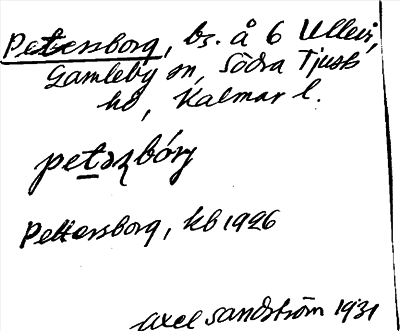 Petersborg, bs. å 6 Ullevi,
Gamleby sn, Södra Tjusts
hd, Kalmar l.
petəʂbórj
Pettersborg, kb 1926
Axel Sandström 1931